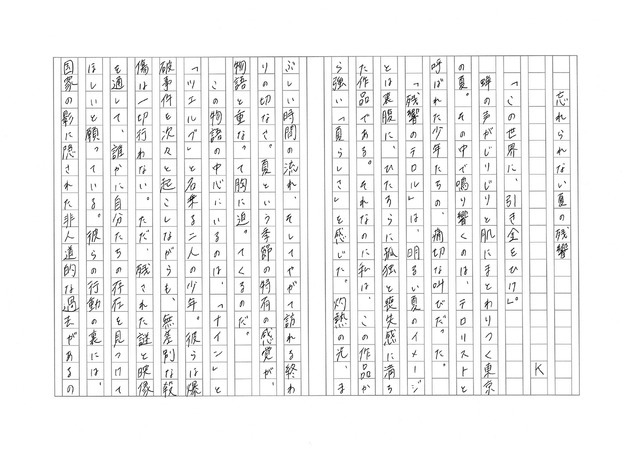 忘れられない夏の残響
K
「この世界に、引き金をひけ」。
蝉の声がじりじりと肌にまとわりつく東京
の夏。その中で鳴り響くのは、テロリストと
呼ばれた少年たちの、痛切な叫びだった。
『残響のテロル』は、明るい夏のイメージ
とは裏腹に、ひたすらに孤独と喪失感に満ち
た作品である。それなのに私は、この作品か
ら強い「夏らしさ」を感じた。灼熱の光、ま
ぶしい時間の流れ、そしてやがて訪れる終わ
りの切なさ。夏という季節の特有の感覚が、
物語と重なって胸に迫ってくるのだ。
この物語の中心にいるのは、「ナイン」と
「ツエルブ」と名乗る二人の少年。彼らは爆
破事件を次々と起こしながらも、無差別な殺
傷は一切行わない。ただ、残された謎と映像
を通して、誰かに自分たちの存在を見つけて
ほしいと願っている。彼らの行動の裏には、
国家の影に隠された非人道的な過去があるの